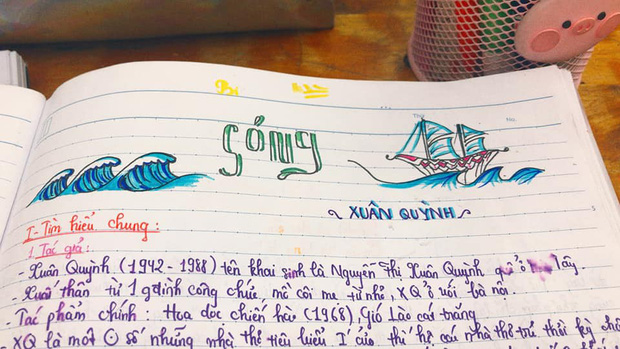 Sóng
XUÂN QUỲNH
I - Tìm hiểu chung:
1. Tác giả:
- Xuân Quỳnh (1942 - 1988) tên khai sinh là Nguyễn Thị Xuân Quỳnh quê ở Tây.
- Xuất thân từ 1 g.đình công chức, mồ côi mẹ từ nhỏ, XQ ở với bà nội.
- Tác phẩm chính: Hoa dọc chiến hào (1968), Gió Lào cát trắng
- XQ là một số những nhà thơ tiêu biểu thế hệ các nhà thơ trẻ thời kỳ